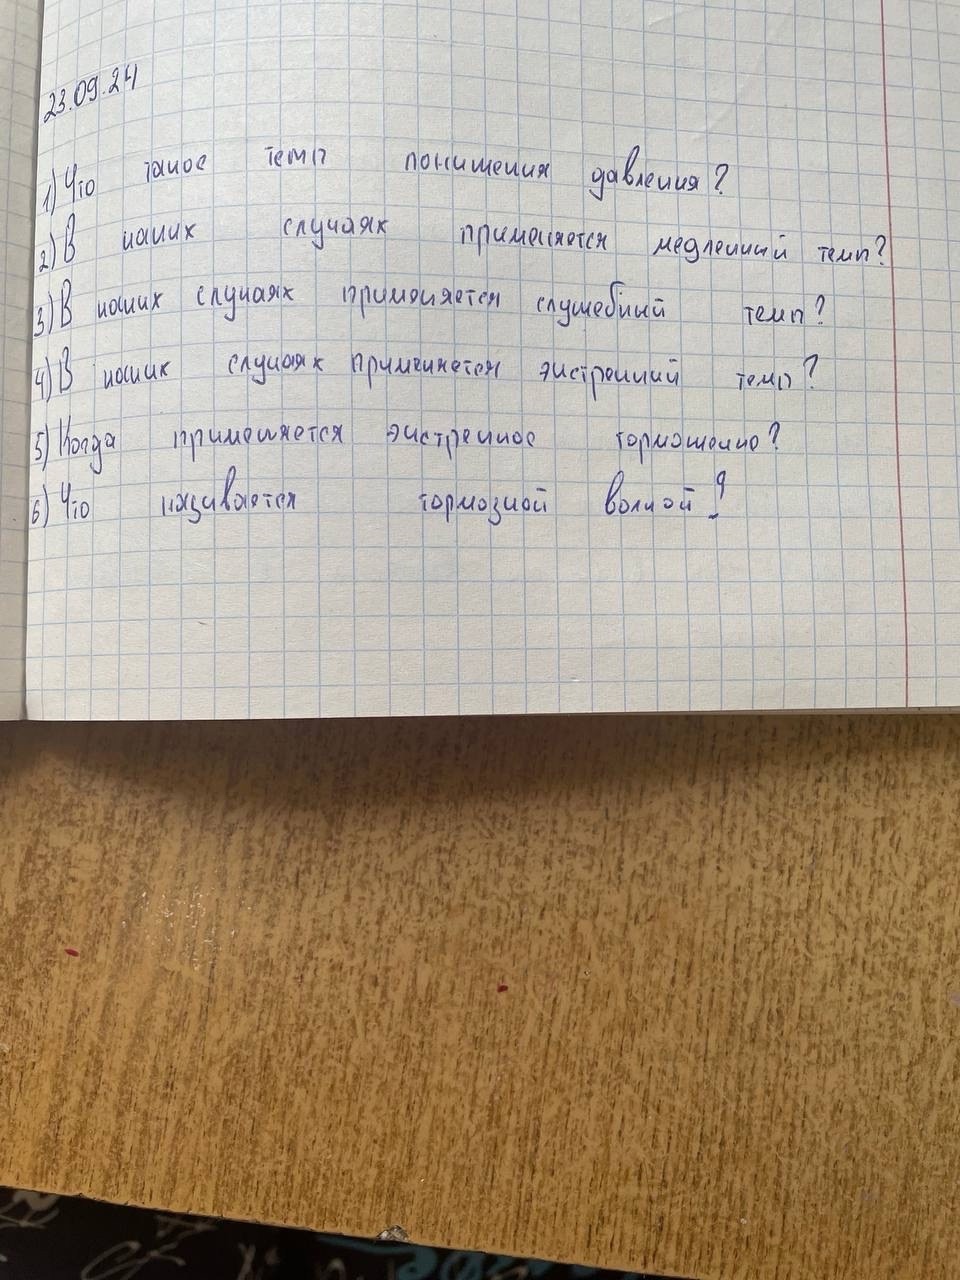 23.09.24
1) Что такое темп понижения давления?
2) В каких случаях применяется медленный темп?
3) В каких случаях применяется служебный темп?
4) В каких случаях применяется экстренный темп?
5) Когда применяется экстренное торможение?
6) Что называется тормозной волной?